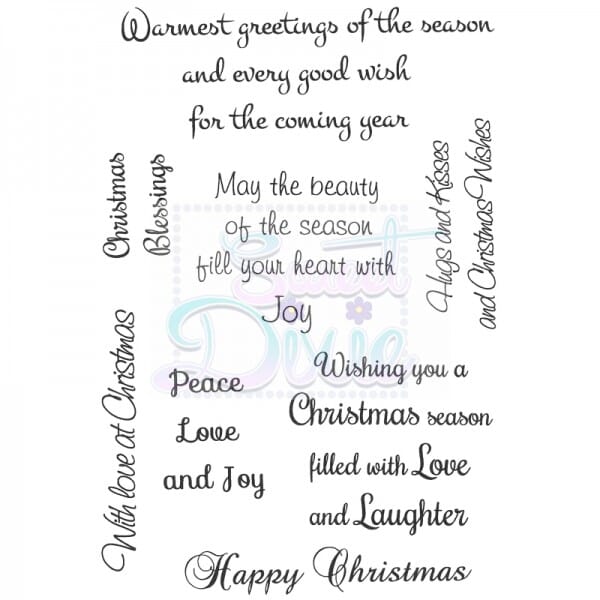 Warmest greetings of the season
and every good wish
for the coming year
Christmas
Blessings
May the beauty
of the season
fill your heart with
Joy
Hugs and Kisses
and Christmas Wishes
Sweet
Dixie
With love at Christmas
Peace
Love
and Joy
Wishing you a
Christmas season
filled with Love
and Laughter
Happy Christmas